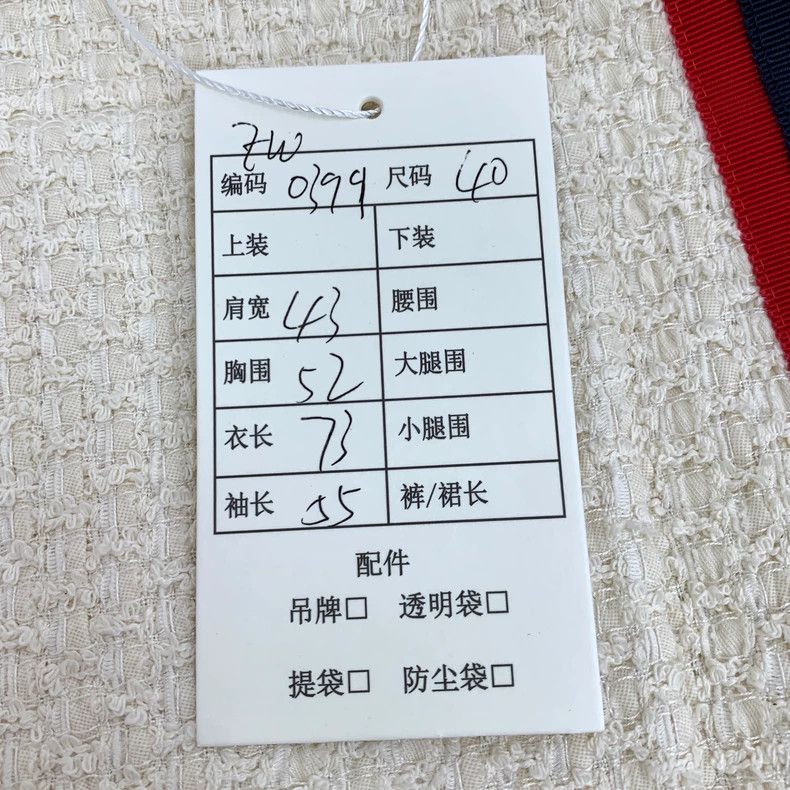 ZW
编码 0399 尺码 40
上装 下装
肩宽 43 腰围
胸围 52 大腿围
衣长 73 小腿围
袖长 55 裤/裙长
配件
吊牌□ 透明袋□
提袋□ 防尘袋□